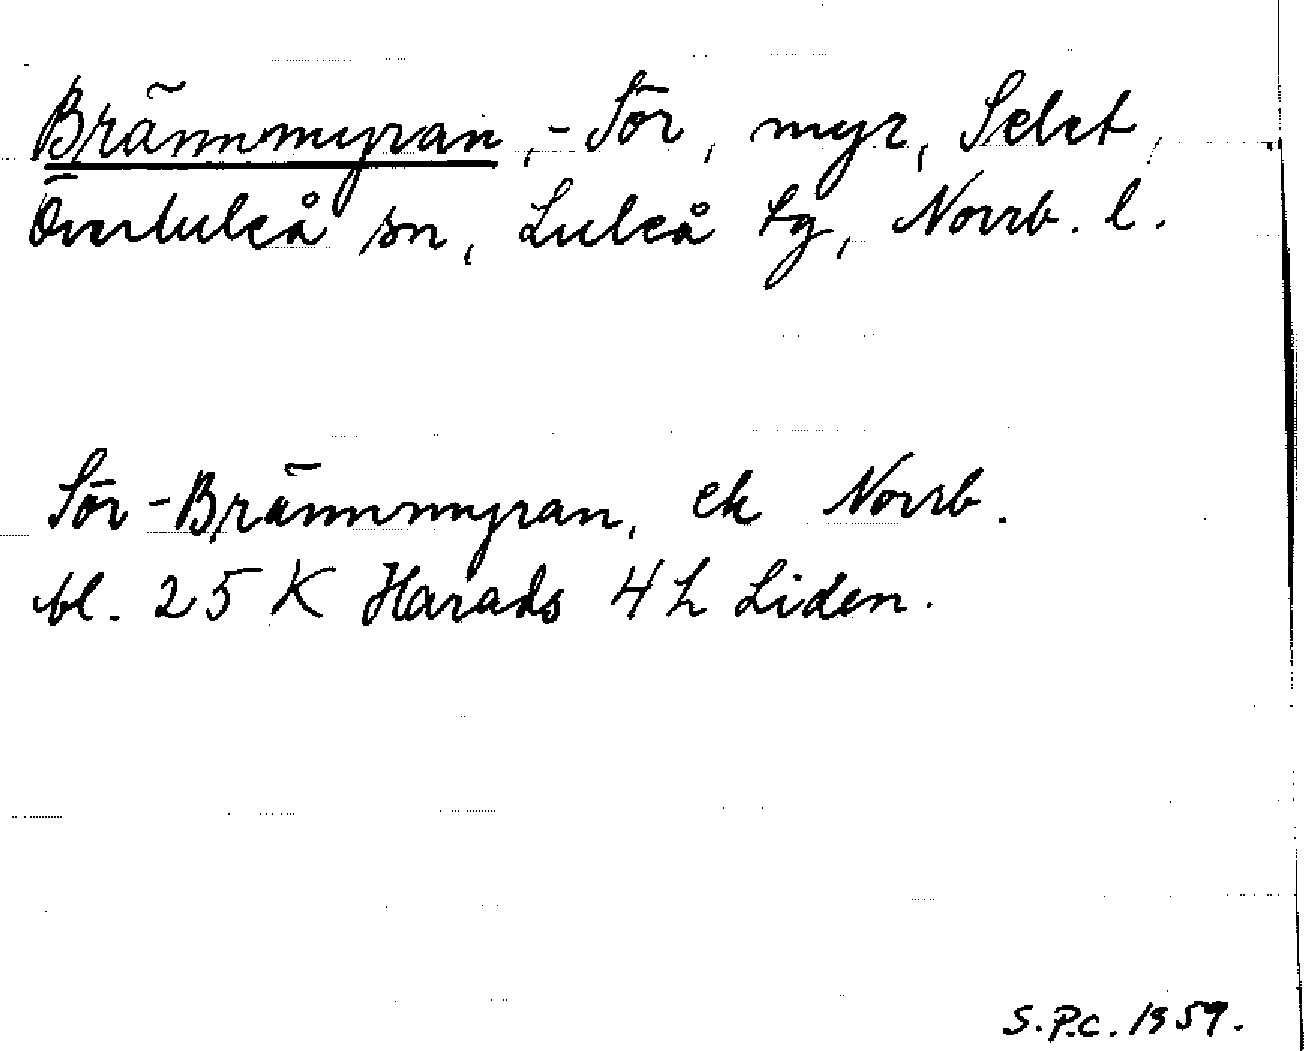 Brännmyran, -Sör, myr, Selet,
Överluleå sn, Luleå tg, Norrb. l.
Sör-Brännmyran, ek Norrb.
bl. 25 K Harads 4 h Liden.
S.P.C. 1959.